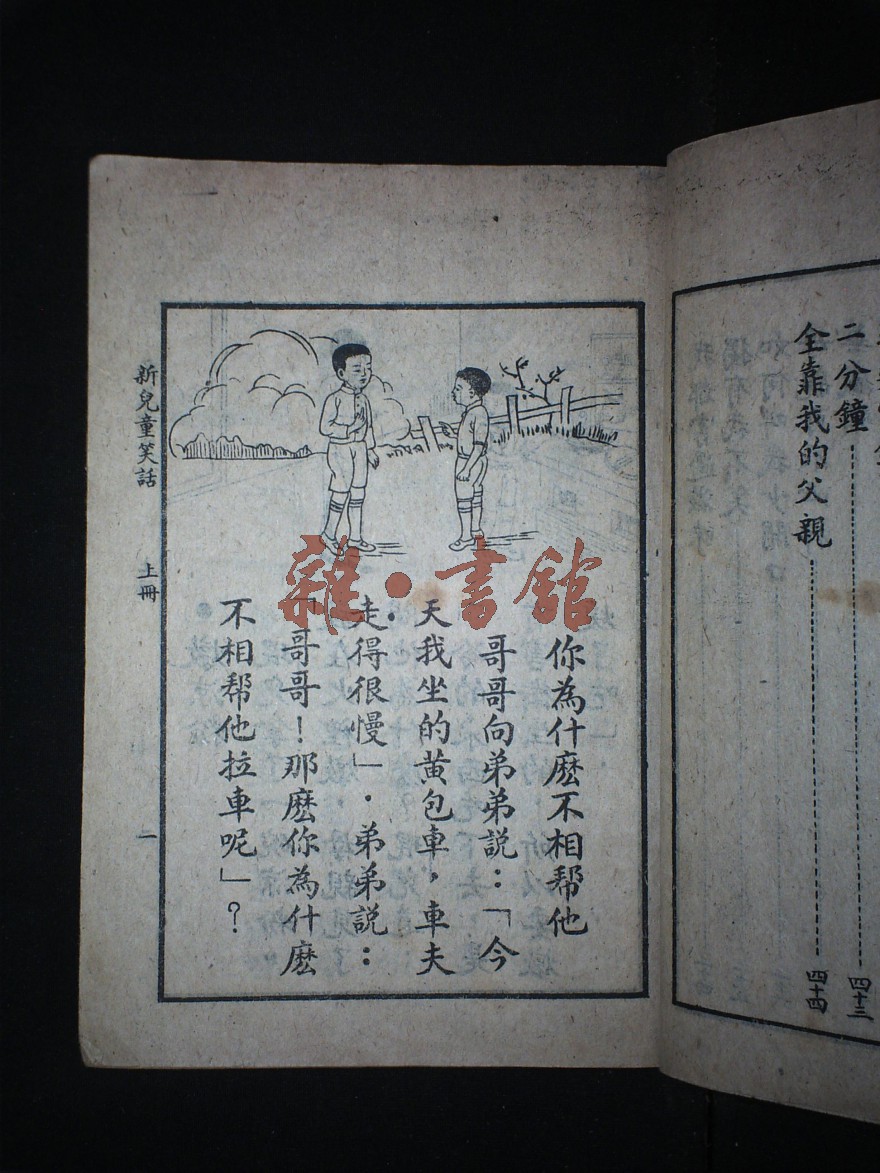 二分鐘 四十三
全靠我的父親 四十四
你為什麽不相幫他
哥哥向弟弟説：「今
天我坐的黄包車，車夫
走得很慢」．弟弟説：
「哥哥！那麽你為什麽
不相幫他拉車呢」？
新兒童笑話 上冊 一
雜·書館